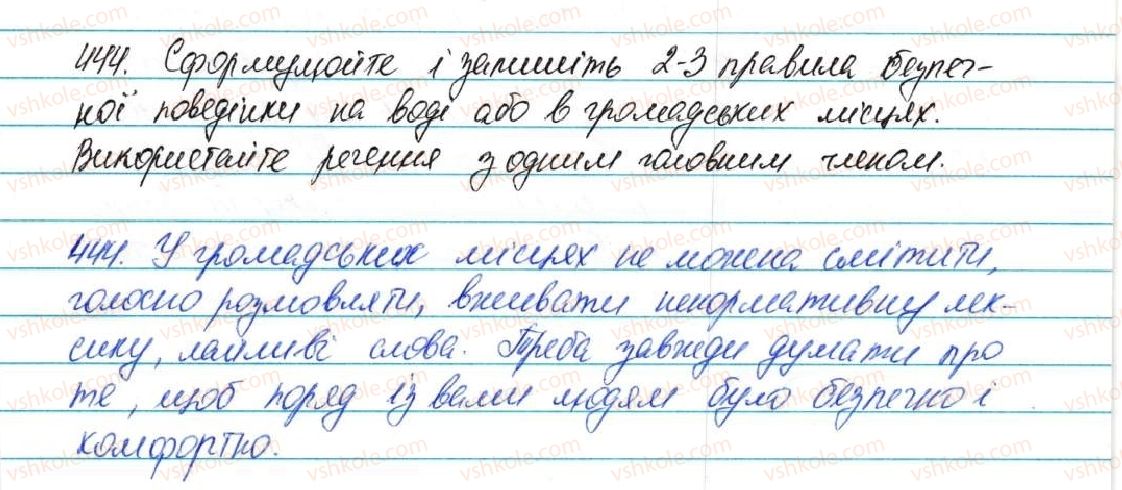 444. Сформулюйте і запишіть 2-3 правила безпеч-
ної поведінки на воді або в громадських місцях.
Використайте речення з одним головним членом.
444. У громадських місцях не можна смітити,
голосно розмовляти, вживати ненормативну лек-
сику, лайливі слова. Треба завжди думати про
те, щоб поряд із вами людям було безпечно і
комфортно.
vshkole.com